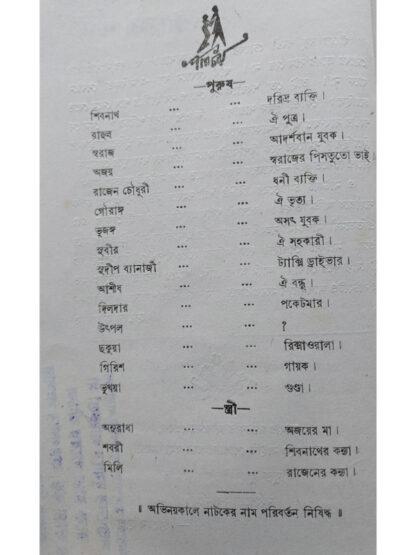 পরিচয়
—পুরুষ—
শিবনাথ ... ... দরিদ্র ব্যক্তি।
রাহুল ... ... ঐ পুত্র।
স্বরাজ ... ... আদর্শবান যুবক।
অজয় ... ... স্বরাজের পিসতুতো ভাই।
রাজেন চৌধুরী ... ... ধনী ব্যক্তি।
গৌরাঙ্গ ... ... ঐ ভৃত্য।
ভূজঙ্গ ... ... অসৎ যুবক।
সুবীর ... ... ঐ সহকারী।
সুদীপ ব্যানার্জী ... ... ট্যাক্সি ড্রাইভার।
আশীষ ... ... ঐ বন্ধু।
দিলদার ... ... পকেটমার।
উৎপল ... ... ?
ছকুয়া ... ... রিক্সাওয়ালা।
গিরিশ ... ... গায়ক।
ভুখয়া ... ... গুণ্ডা।
—স্ত্রী—
অনুরাধা ... ... অজয়ের মা।
শবরী ... ... শিবনাথের কন্যা।
মিলি ... ... রাজেনের কন্যা।
॥ অভিনয়কালে নাটকের নাম পরিবর্তন নিষিদ্ধ ॥